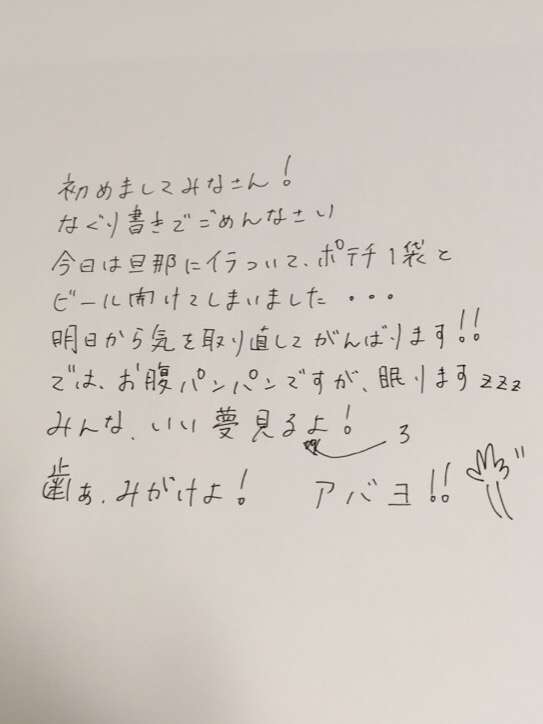 初めましてみなさん!
なぐり書きでごめんなさい
今日は旦那にイラついて、ポテチ1袋と
ビール開けてしまいました・・・
明日から気を取り直してがんばります!!
では、お腹パンパンですが、眠りますzzz
みんな、いい夢見るよ!
ろ
歯ぁ、みがけよ! アバヨ!!